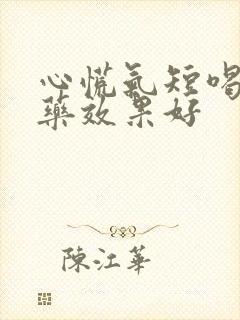 心慌氣短喝
藥效果好
陳江華